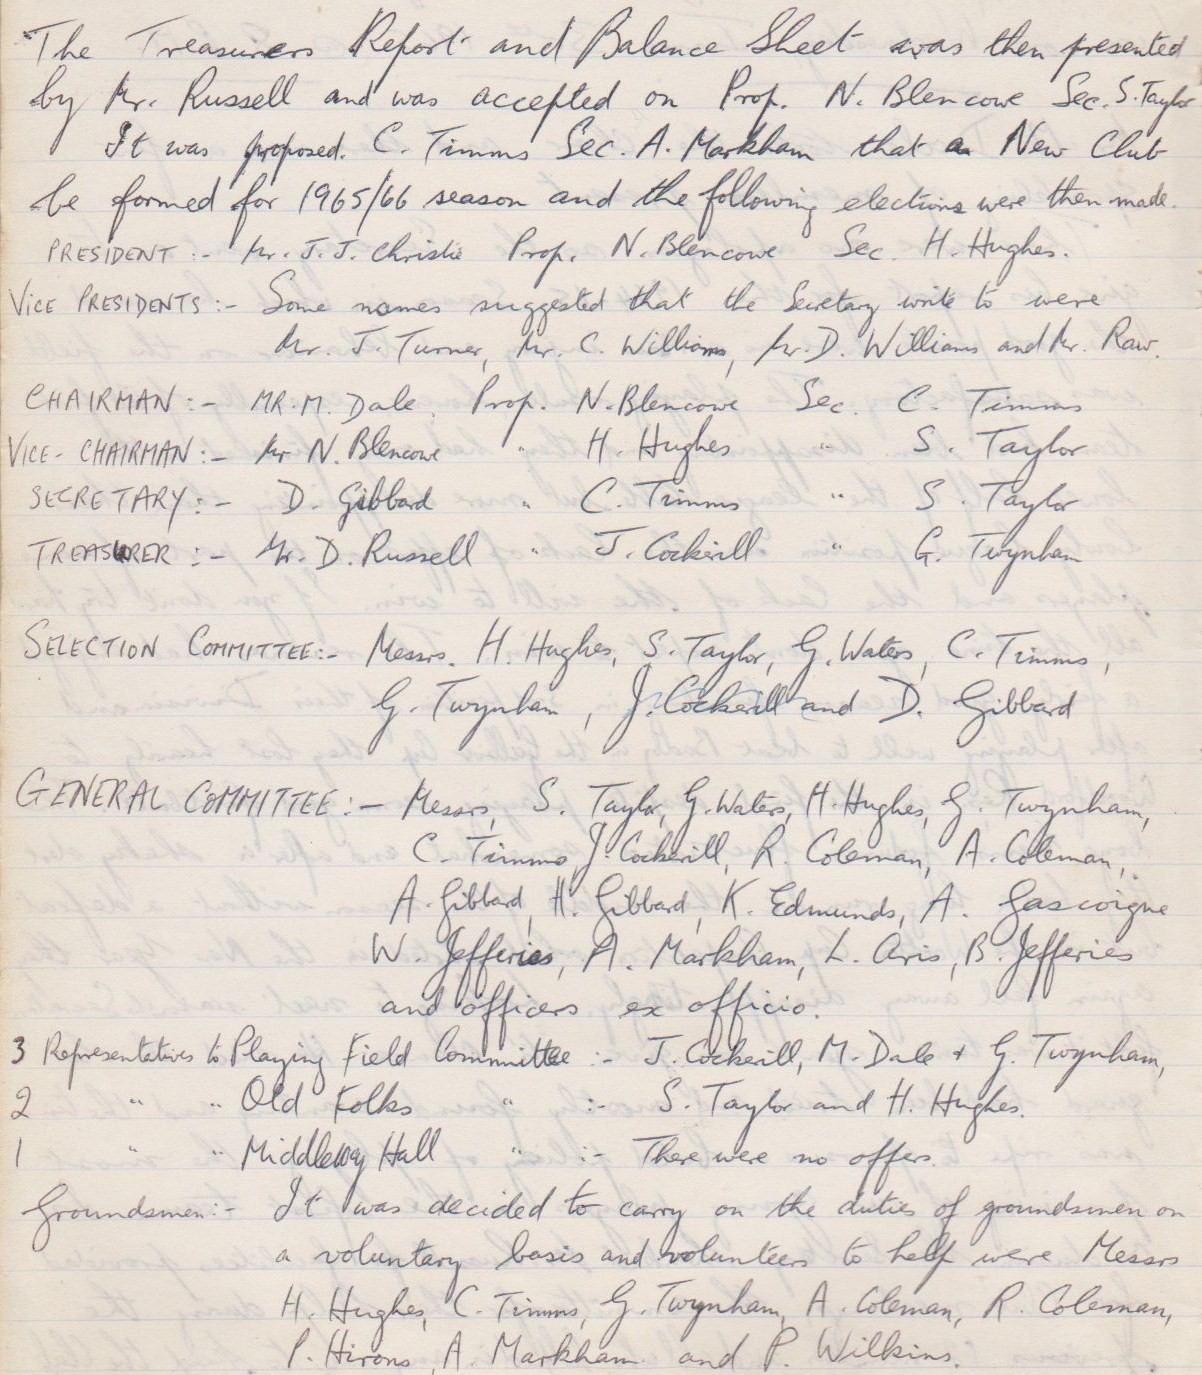 The Treasurers Report and Balance Sheet was then presented
by Mr. Russell and was accepted on Prop. N. Blencowe Sec. S. Taylor
It was proposed. C. Timms Sec. A. Markham that a New Club
be formed for 1965/66 season and the following elections were then made.
PRESIDENT :- Mr. J. J. Christie Prop. N. Blencowe Sec. H. Hughes.
VICE PRESIDENTS :- Some names suggested that the Secretary write to were
Mr. J. Turner, Mr. C. Williams, Mr. D. Williams and Mr. Raw.
CHAIRMAN :- MR. M. Dale. Prop. N. Blencowe Sec. C. Timms
VICE-CHAIRMAN :- Mr N. Blencowe " H. Hughes " S. Taylor
SECRETARY :- D. Gibbard " C. Timms " S. Taylor
TREASURER :- Mr. D. Russell " J. Cockerill " G. Twynham
SELECTION COMMITTEE :- Messrs. H. Hughes, S. Taylor, G. Waters, C. Timms,
G. Twynham, J. Cockerill and D. Gibbard
GENERAL COMMITTEE :- Messrs, S. Taylor, G. Waters, H. Hughes, G. Twynham,
C. Timms J. Cockerill, R. Coleman, A. Coleman,
A. Gibbard, H. Gibbard, K. Edmunds, A. Gascoigne
W. Jefferies, A. Markham, L. Aris, B. Jefferies
and officers ex officio.
3 Representatives to Playing Field Committee :- J. Cockerill, M. Dale + G. Twynham,
2 " " Old Folks " :- S. Taylor and H. Hughes.
1 " " Middleway Hall " :- There were no offers.
Groundsmen :- It was decided to carry on the duties of groundsmen on
a voluntary basis and volunteers to help were Messrs
H. Hughes, C. Timms, G. Twynham, A. Coleman, R. Coleman,
P. Hirons, A. Markham and P. Wilkins.